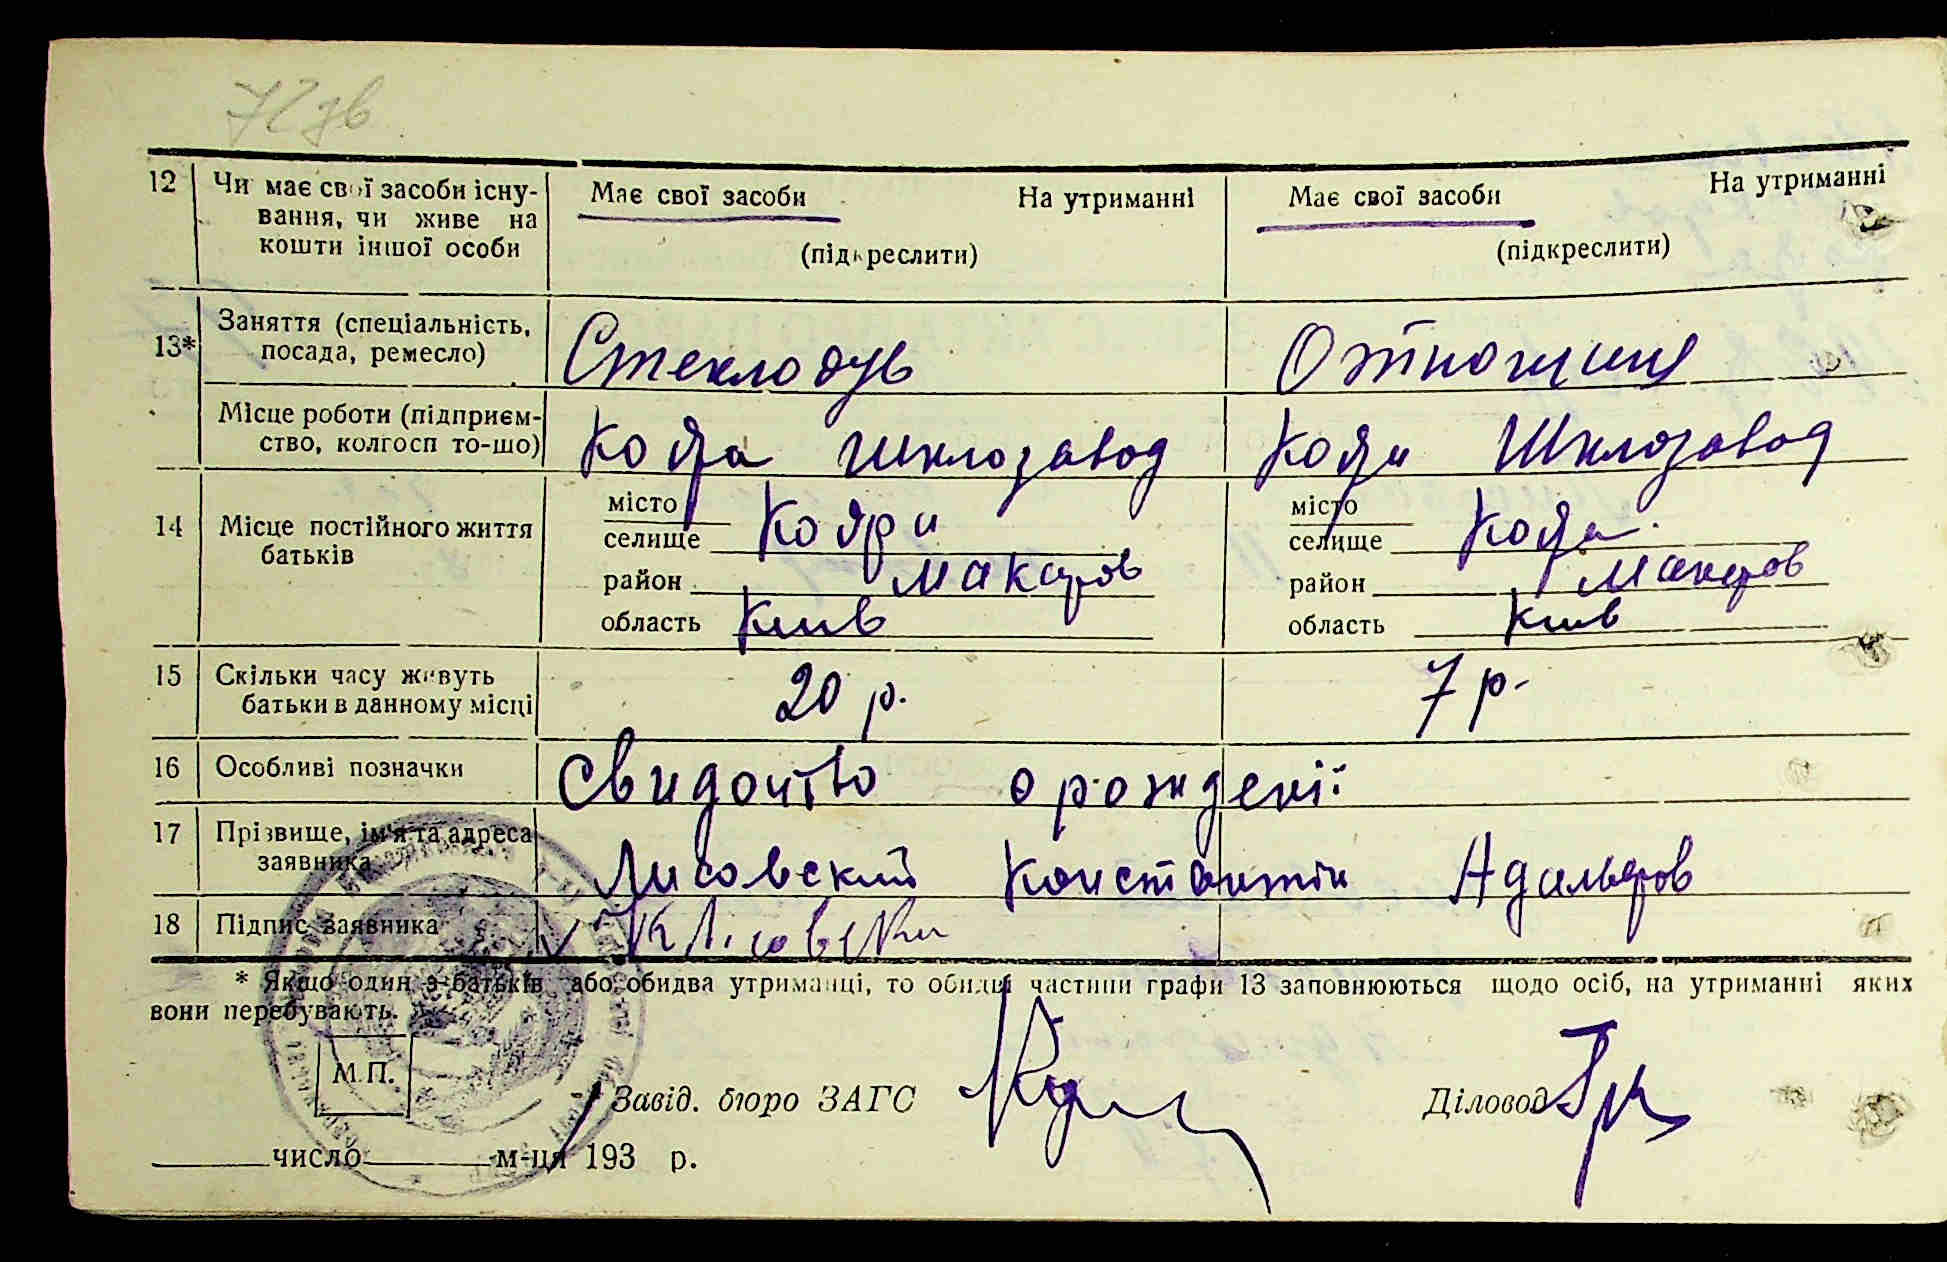 72 зв
12 Чи має свої засоби існу- Має свої засоби На утриманні Має свої засоби На утриманні
вання, чи живе на
кошти іншої особи (підкреслити) (підкреслити)
13* Заняття (спеціальність,
посада, ремесло) Стеклодув
Місце роботи (підприєм-
ство, колгосп то-що) Шклозавод Шклозавод
14 Місце постійного життя батьків
місто місто
селище селище
район Макаров район Макаров
область Київ область Київ
15 Скільки часу живуть
батьки в данному місці 20 р. 7 р.
16 Особливі позначки Свидоцтво о рождені
17 Прізвище, ім'я та адреса
заявника Лисовский Константин
18 Підпис заявника К Лісовскі
* Якщо один з батьків або обидва утриманці, то обидві частини графи 13 заповнюються щодо осіб, на утриманні яких
вони перебувають.
М.П.
Завід. бюро ЗАГС Діловод
число м-ця 193 р.